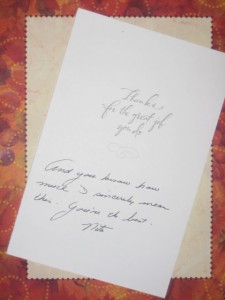 Thanks
for the great job
you do
And you know how
much I sincerely mean
this. You're the best.